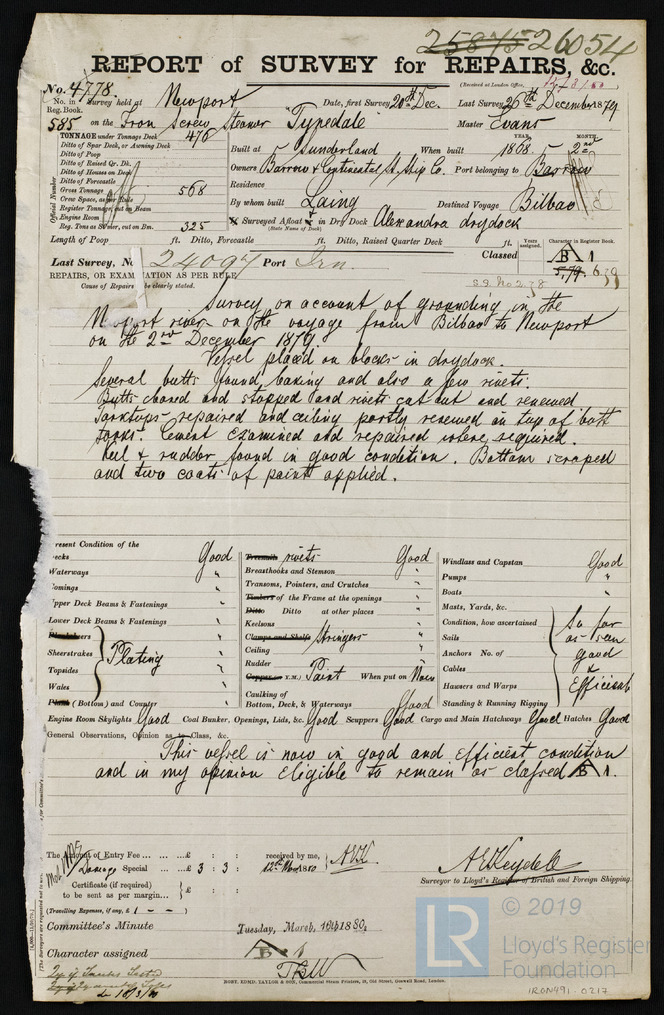 25875 26054
REPORT of SURVEY for REPAIRS, &c.
(Received at London Office,
No. 4778.
No. in Reg. Book. Survey held at Newport Date, first Survey 20th Dec. Last Survey 26th December 1879
585 on the Iron Screw Steamer "Tynedale" Master Evans
TONNAGE under Tonnage Deck 476
Ditto of Spar Deck, or Awning Deck
Ditto of Poop
Ditto of Raised Qr. Dk.
Ditto of Houses on Deck
Ditto of Forecastle
Gross Tonnage 568
Crew Space, as per Rule
Register Tonnage, cut on Beam
Engine Room
Reg. Tons as Steamer, cut on Bm. 325
Official Number
YEAR. MONTH.
Built at Sunderland When built 1868. 2nd
Owners Barrow & Continental St. Ship Co. Port belonging to Barrow
Residence
By whom built Laing Destined Voyage Bilbao
Surveyed Afloat or in Dry Dock Alexandra drydock
(State Name of Dock)
Length of Poop ft. Ditto, Forecastle ft. Ditto, Raised Quarter Deck ft.
Years assigned. Character in Register Book.
Last Survey, No. 24097 Port Irn. Classed B 1
5,79. 6,79
S.S. No 2.78
REPAIRS, OR EXAMINATION AS PER RULE
Cause of Repairs to be clearly stated.
Survey on account of grounding in the
Newport river on the voyage from Bilbao to Newport
on the 2nd December 1879.
Vessel placed on blocks in drydock.
Several butts found leaking and also a few rivets.
Butts chased and stopped and rivets cut out and renewed
Tanktops repaired and ceiling partly renewed on top of both
tanks. Cement examined and repaired where required.
Keel & rudder found in good condition. Bottom scraped
and two coats of paint applied.
Present Condition of the
Decks Good
Waterways "
Comings "
Upper Deck Beams & Fastenings "
Lower Deck Beams & Fastenings "
Plating
Sheerstrakes "
Topsides "
Wales "
Plank (Bottom) and Counter "
Treenails rivets Good
Breasthooks and Stemson "
Transoms, Pointers, and Crutches "
Timbers of the Frame at the openings "
Ditto Ditto at other places "
Keelsons "
Clamps and Shelfs Stringers "
Ceiling "
Rudder "
Copper (or Y.M.) Paint When put on Now
Caulking of
Bottom, Deck, & Waterways Good
Windlass and Capstan Good
Pumps "
Boats "
Masts, Yards, &c.
Condition, how ascertained So far
Sails as seen
Anchors No. of good
Cables &
Hawsers and Warps Efficient
Standing & Running Rigging
Engine Room Skylights Good Coal Bunker, Openings, Lids, &c. Good Scuppers Good Cargo and Main Hatchways Good Hatches Good
General Observations, Opinion as to Class, &c.
This vessel is now in good and Efficient condition
and in my opinion Eligible to remain as classed B 1.
The Amount of Entry Fee ... ... ... £ : :
Special ... ... £ 3 : 3 :
received by me,
1880
Certificate (if required)
to be sent as per margin... } £ : :
(Travelling Expenses, if any, £
A E Keydell
Surveyor to Lloyd's Register of British and Foreign Shipping.
Committee's Minute Tuesday, March, 16th 1880.
Character assigned B 1
ROBT. EDMD. TAYLOR & SON, Commercial Steam Printers, 19, Old Street, Goswell Road, London.
© 2019
LR
Lloyd's Register
Foundation
IRON491-0217